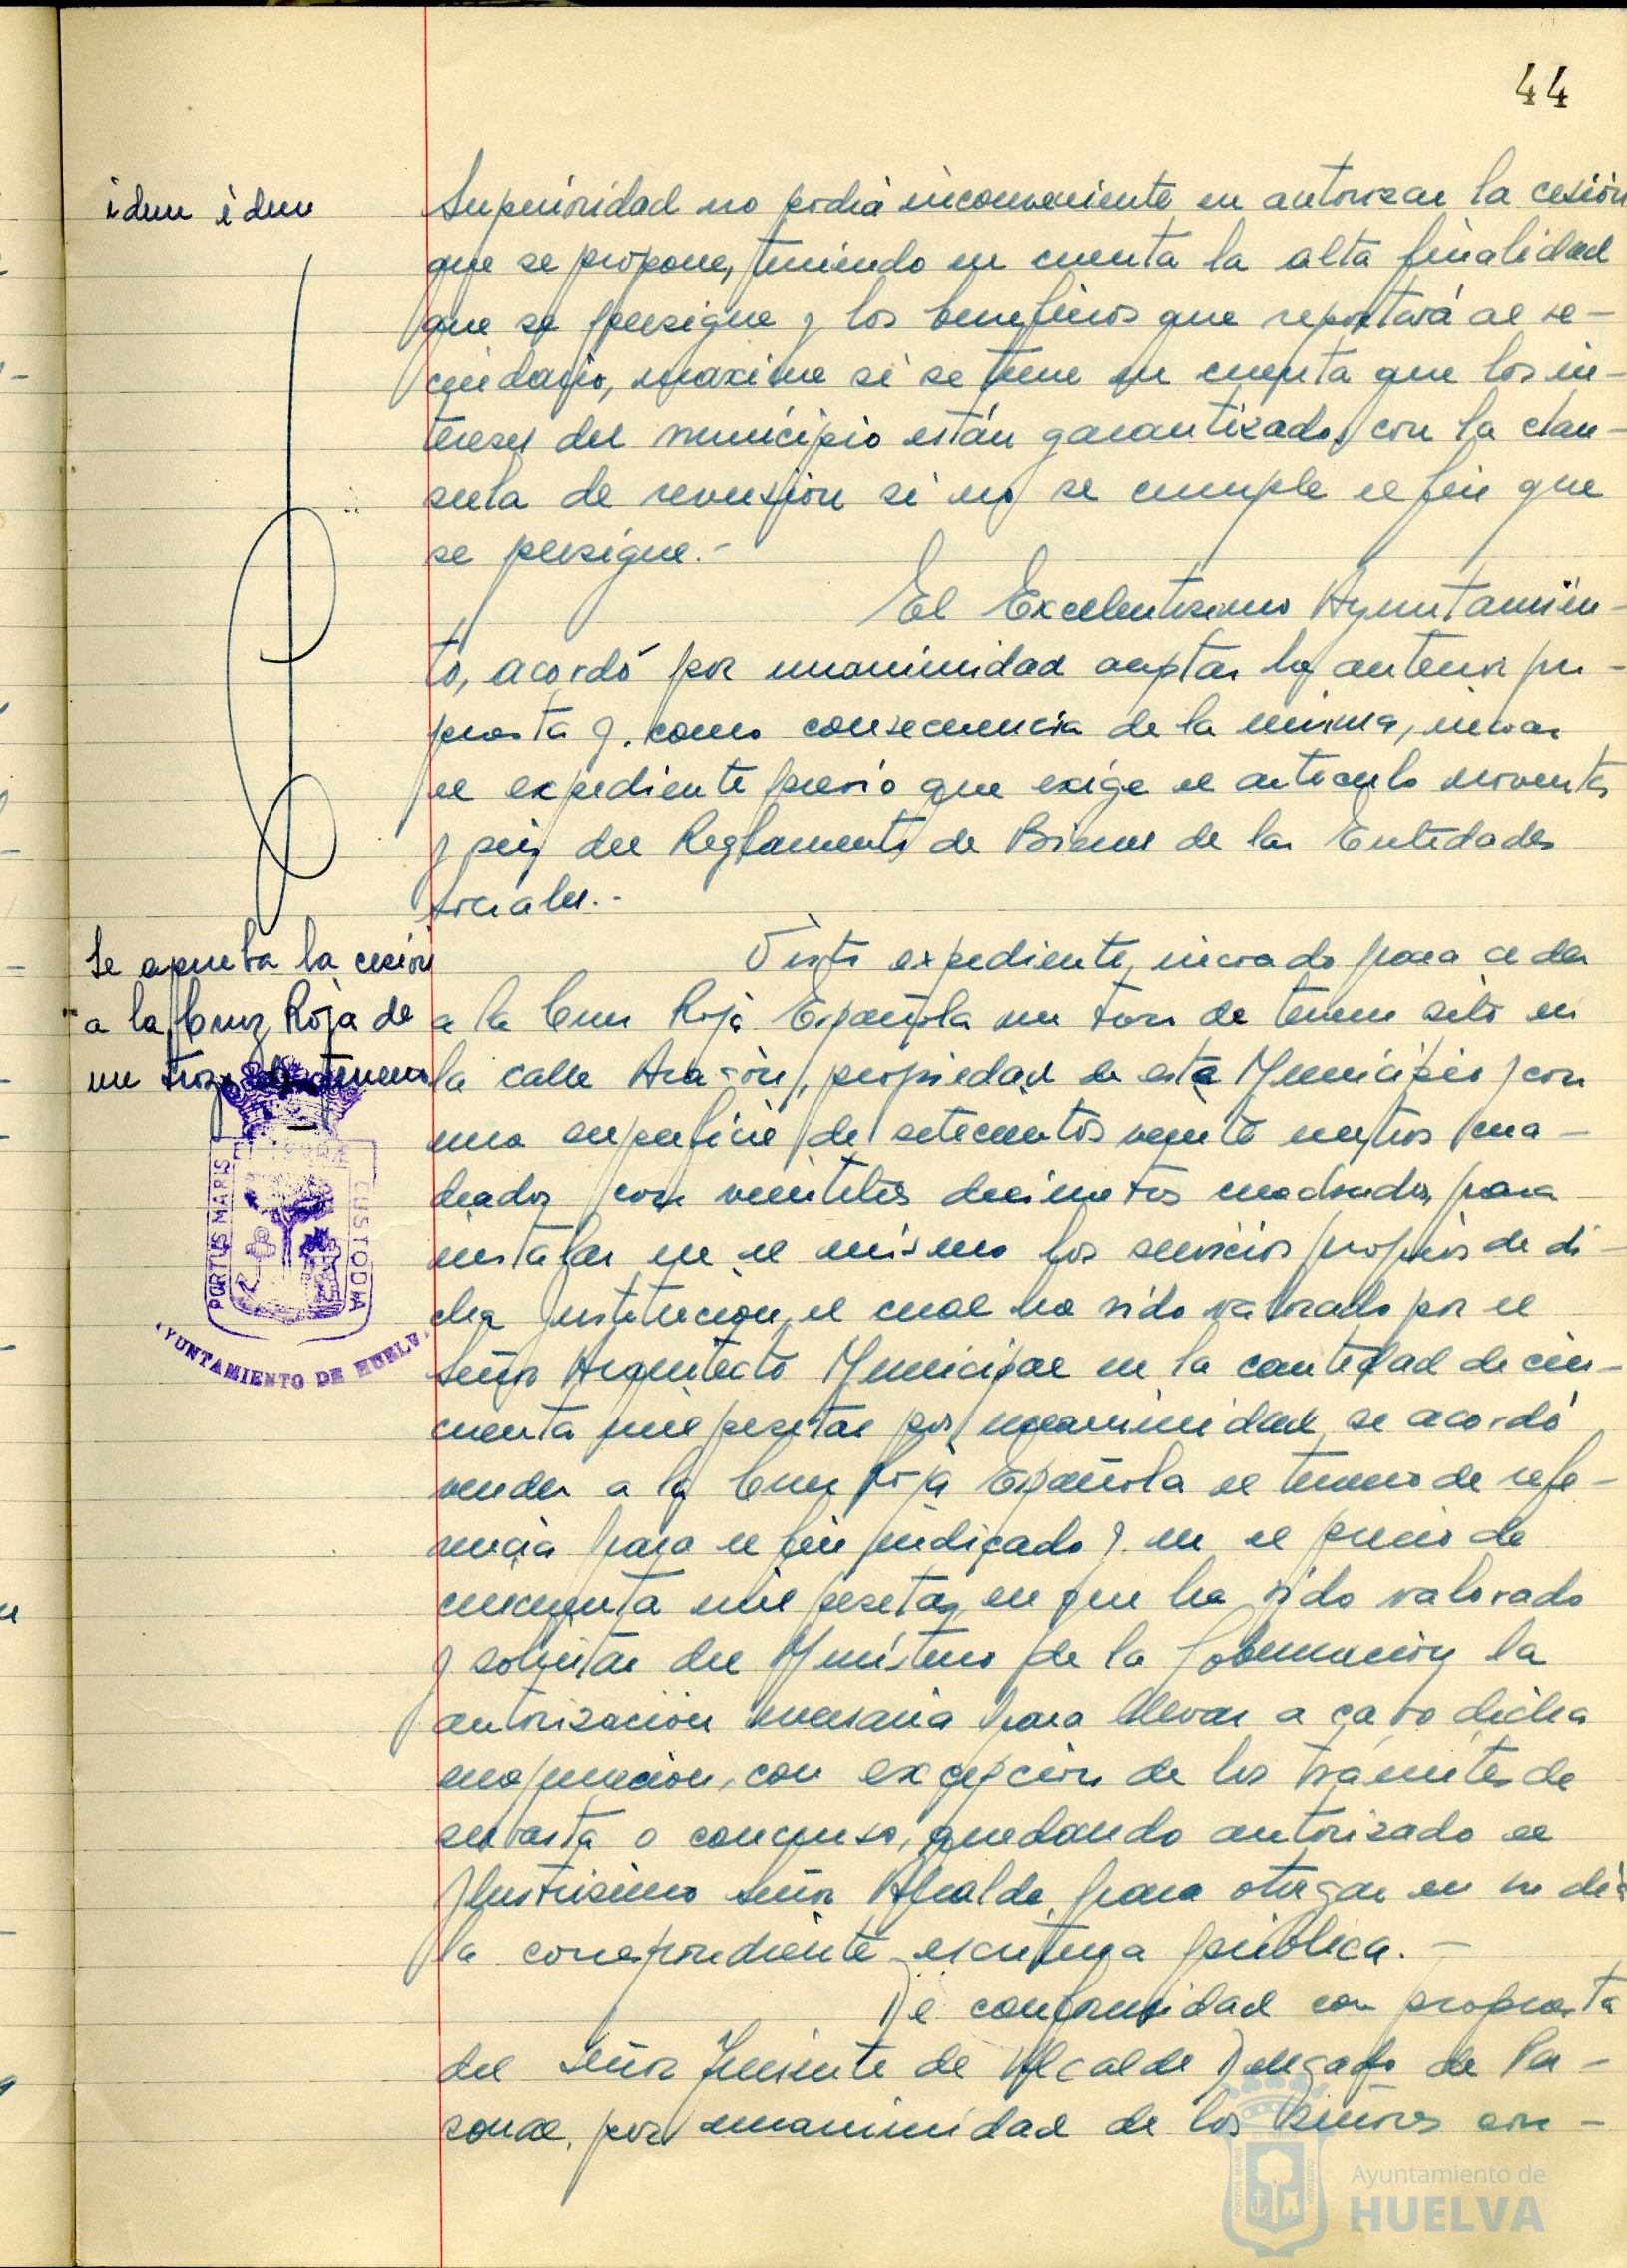 44
idem idem
Superioridad no podrá inconveniente en autorizar la cesión
que se propone, teniendo en cuenta la alta finalidad
que se persigue y los beneficios que reportará al ve-
cindario, maxime si se tiene en cuenta que los in-
tereses del municipio están garantizados con la clau-
sula de reversión si no se cumple el fin que
se persigue.-
El Excelentisimo Ayuntamien-
to, acordó por unanimidad aceptar la anterior pro-
puesta y, como consecuencia de la misma, incoar
el expediente previo que exige el articulo noventa
y seis del Reglamento de Bienes de las Entidades
Locales.-
Se aprueba la cesión
a la Cruz Roja de
un trozo de terreno
Visto expediente, incoado para ceder
a la Cruz Roja Española un trozo de terreno sito en
la calle Aragón, propiedad de este Municipio y con
una superficie de setecientos veinte metros cua-
drados, con veintitrés decimetros cuadrados, para
instalar en el mismo los servicios propios de di-
cha Institución, el cual ha sido valorado por el
señor Arquitecto Municipal en la cantidad de cin-
cuenta mil pesetas por unanimidad, se acordó
vender a la Cruz Roja Española el terreno de refe-
rencia para el fin indicado y en el precio de
cincuenta mil pesetas, en que ha sido valorado
y solicitar del Ministerio de la Gobernación la
autorización necesaria para llevar a cabo dicha
enajenación, con excepción de los trámites de
subasta o concurso, quedando autorizado el
Ilustrisimo señor Alcalde, para otorgar en su día
la correspondiente escritura pública.-
De conformidad con propuesta
del señor Teniente de Alcalde Delegado de Per-
sonal, por unanimidad de los señores con-
PORTUS MARIS
CUSTODIA
AYUNTAMIENTO DE HUELVA
Ayuntamiento de
HUELVA